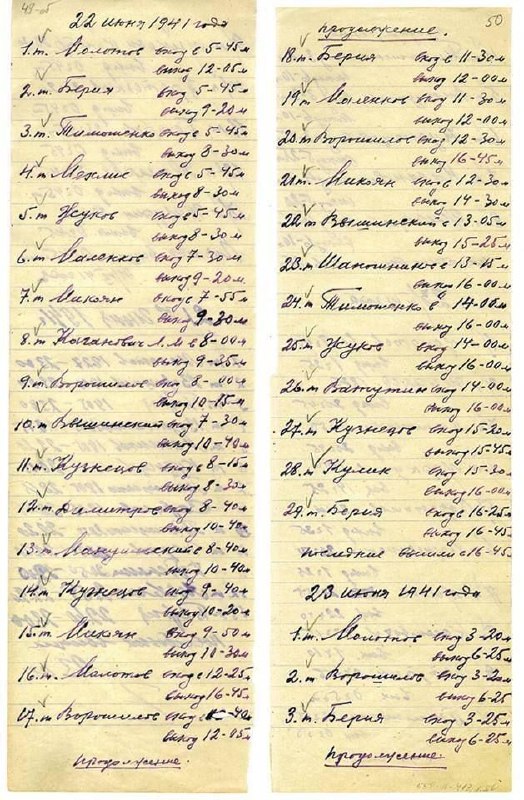 49-об
22 июня 1941 года
1. т. Молотов вход в 5-45 м
выход 12-05 м
2. т. Берия вход 5-45 м
выход 9-20 м
3. т. Тимошенко вход в 5-45 м
выход 8-30 м
4. т. Мехлис вход в 5-45 м
выход 8-30 м
5. т. Жуков вход в 5-45 м
выход 8-30 м
6. т. Маленков вход 7-30 м
выход 9-20 м
7. т. Микоян вход в 7-55 м
выход 9-30 м
8. т. Каганович Л.М. в 8-00 м
выход 9-35 м
9. т. Ворошилов вход 8-00 м
выход 10-15 м
10. т. Вышинский вход 7-30 м
выход 10-40 м
11. т. Кузнецов вход в 8-15 м
выход 8-30 м
12. т. Димитров вход 8-40 м
выход 10-40 м
13. т. Мануильский в 8-40 м
выход 10-40 м
14. т. Кузнецов вход 9-40 м
выход 10-20 м
15. т. Микоян вход 9-50 м
выход 10-30 м
16. т. Молотов вход в 12-25 м
выход 16-45 м
17. т. Ворошилов вход в -40 м
выход 12-05 м
продолжение.
50
продолжение.
18. т. Берия вход в 11-30 м
выход 12-00 м
19. т. Маленков вход 11-30 м
выход 12-00 м
20. т. Ворошилов вход 12-30 м
выход 16-45 м
21. т. Микоян вход в 12-30 м
выход 14-30 м
22. т. Вышинский в 13-05 м
выход 15-25 м
23. т. Шапошников в 13-15 м
выход 16-00 м
24. т. Тимошенко в 14-00 м
выход 16-00 м
25. т. Жуков вход 14-00 м
выход 16-00 м
26. т. Ватутин вход 14-00 м
выход 16-00 м
27. т. Кузнецов вход 15-20 м
выход 15-45 м
28. т. Кулик вход 15-30 м
выход 16-00 м
29. т. Берия вход в 16-25 м
выход 16-45 м
последние вышли в 16-45 м
23 июня 1941 года
1. т. Молотов вход 3-20 м
выход 6-25 м
2. т. Ворошилов вход 3-20 м
выход 6-25
3. т. Берия вход 3-25 м
выход 6-25 м
продолжение.